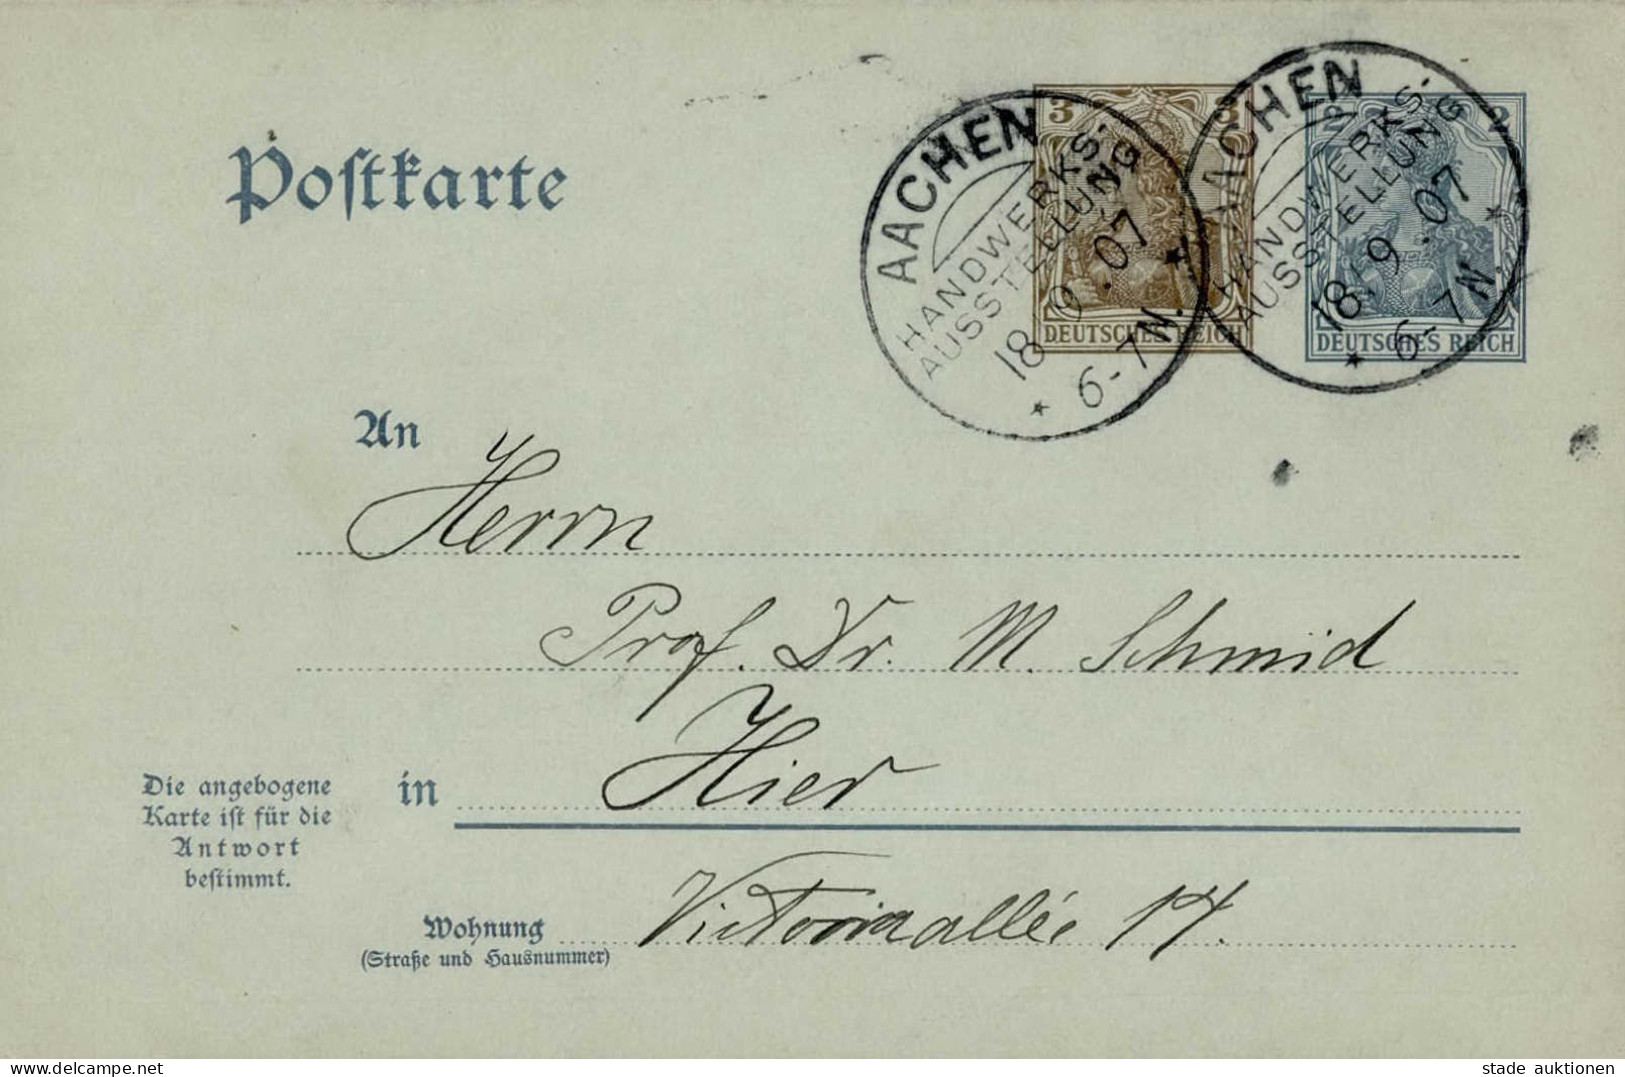 Postkarte
3 3
DEUTSCHES REICH
2 2
DEUTSCHES REICH
AACHEN
HANDWERKS-
AUSSTELLUNG
18.9.07
* 6-7N. *
AACHEN
HANDWERKS-
AUSSTELLUNG
18.9.07
* 6-7N. *
An
Herrn
Prof. Dr. M. Schmid
in Hier
Die angebogene
Karte ist für die
Antwort
bestimmt.
Wohnung Victoriaallée 14.
(Straße und Hausnummer)
www.delcampe.net
stade auktionen